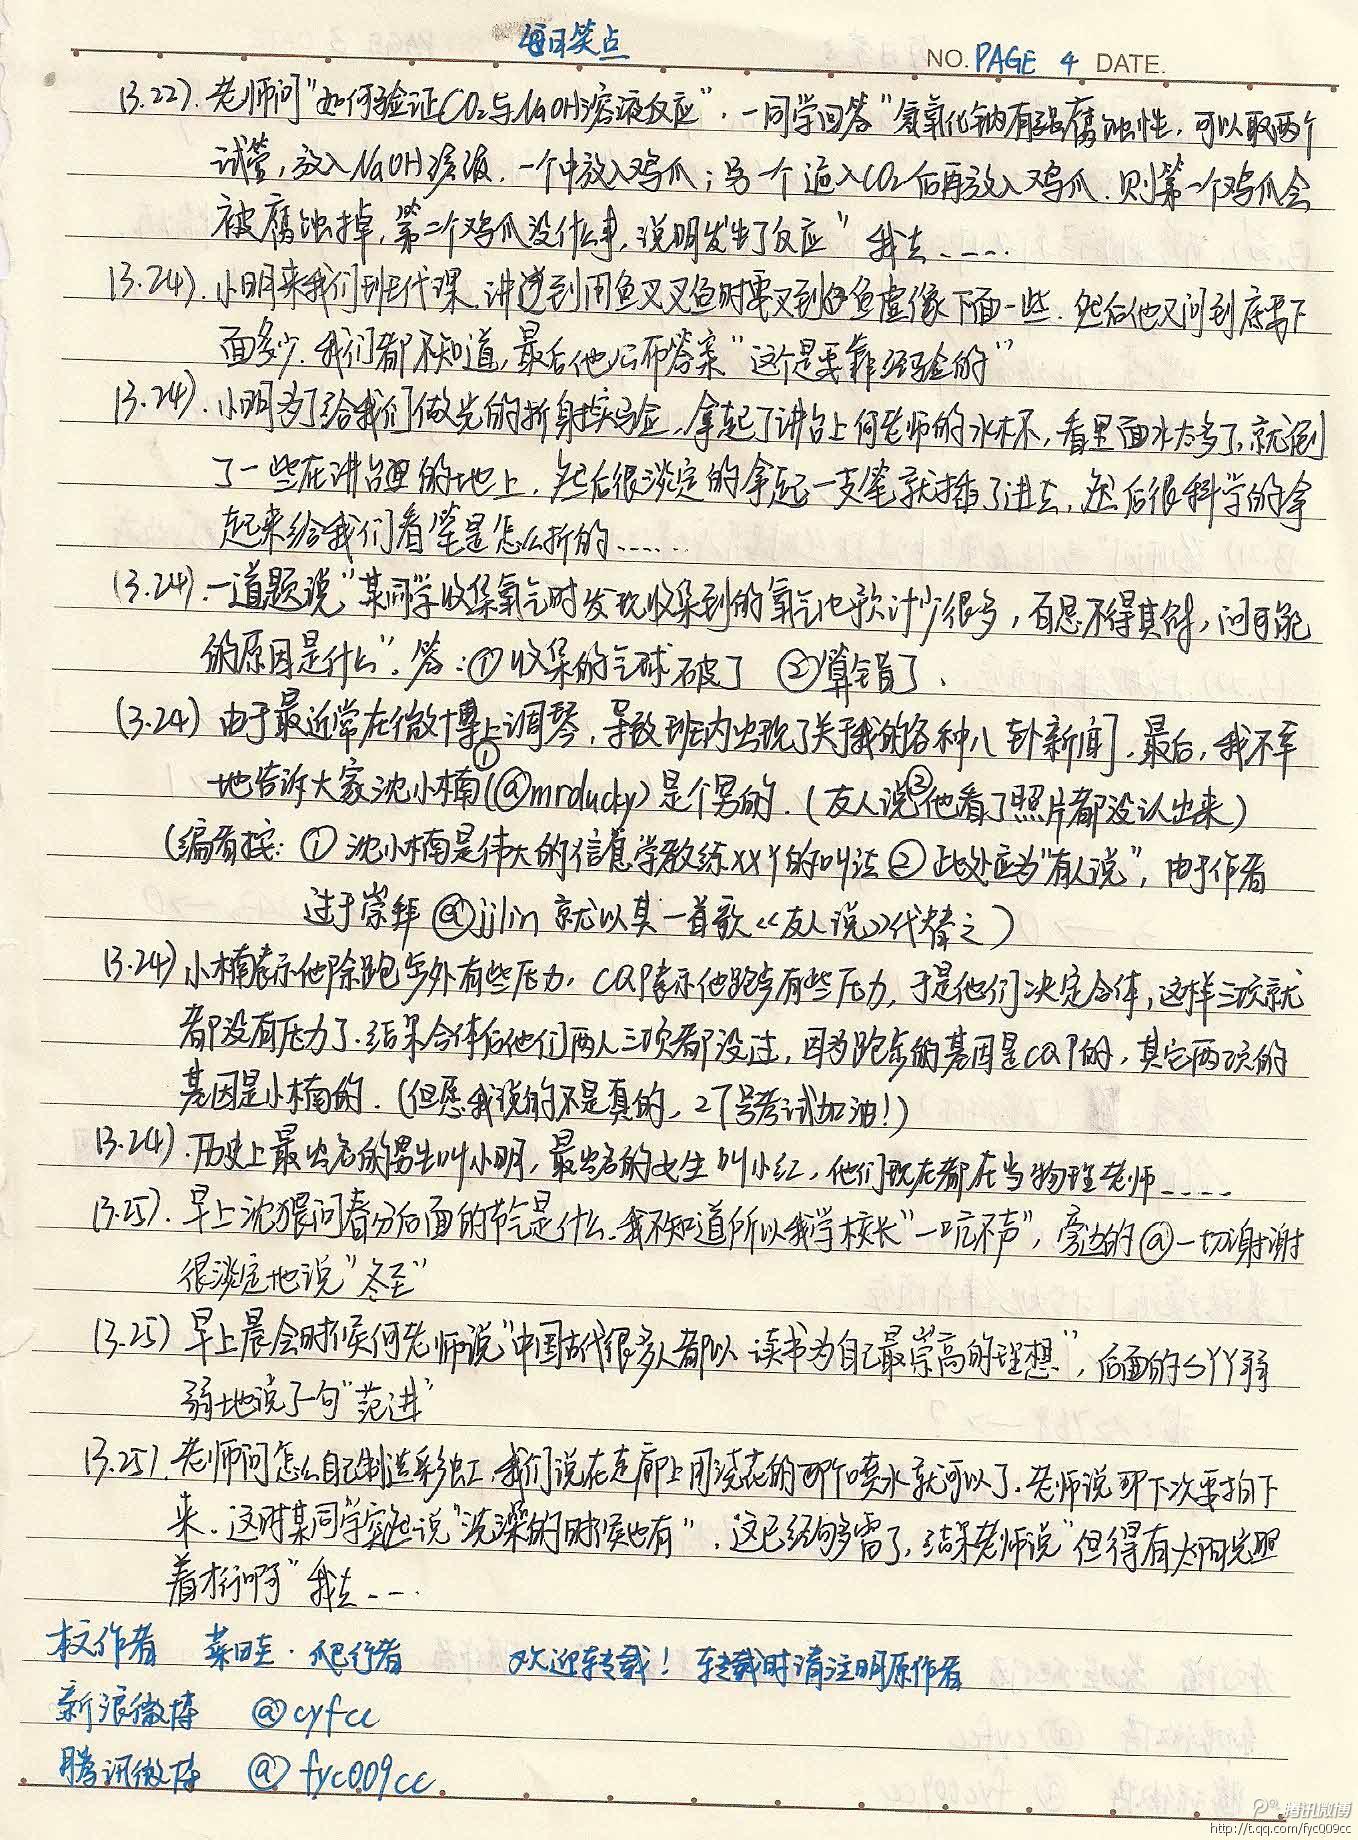 每日笑点
NO. PAGE 4 DATE.
(3.22). 老师问"如何验证CO₂与NaOH溶液反应", 一同学回答"氢氧化钠有强腐蚀性, 可以取两个
试管, 放入NaOH溶液. 一个中放入鸡爪; 另一个通入CO₂后再放入鸡爪. 则第一个鸡爪会
被腐蚀掉, 第二个鸡爪没什么事, 说明发生了反应" 我去......
(3.24). 小明来我们班代课. 讲述到用鱼叉叉鱼时要叉到鱼虚像下面一些. 然后他又问到底要下
面多少. 我们都不知道, 最后他公布答案"这个是要靠经验的"
(3.24). 小明为了给我们做光的折射实验, 拿起了讲台上何老师的水杯, 看里面水太多了, 就倒
了一些在讲台里的地上. 然后很淡定的拿起一支笔就插了进去, 然后很科学的拿
起来给我们看笔是怎么折的......
(3.24). 一道题说"某同学收集氧气时发现收集到的氧气比预计少很多, 百思不得其解, 问可能
的原因是什么". 答: ① 收集的气球破了 ②算错了.
(3.24) 由于最近常在微博上调琴, 导致班内出现了关于我的各种八卦新闻. 最后, 我不幸
地告诉大家沈小楠①(@mrducky)是个男的. (友人说②他看了照片都没认出来)
(编者按: ① 沈小楠是伟大的信息学教练XXY的叫法 ② 此处应为"有人说", 由于作者
过于崇拜 @jjlin 就以其一首歌《友人说》代替之)
(3.24) 小楠表示他除跑步外有些压力, CQP表示他跑步有些压力, 于是他们决定合体, 这样三项就
都没有压力了. 结果合体后他们两人三项都没过, 因为跑步的基因是CQP的, 其它两项的
基因是小楠的. (但愿我说的不是真的, 27号考试加油!)
(3.24). 历史上最出名的男生叫小明, 最出名的女生叫小红, 他们现在都在当物理老师....
(3.25). 早上沈猥问春分后面的节气是什么. 我不知道所以我学校长"一吭不声", 旁边的@一切谢谢
很淡定地说"冬至"
(3.25) 早上晨会时候何老师说"中国古代很多人都以读书为自己最崇高的理想", 后面的SYY弱
弱地说了一句"范进"
(3.25). 老师问怎么自己制造彩虹. 我们说在走廊上用浇花的那个喷水就可以了. 老师说那下次要拍下
来. 这时某同学突然说"洗澡的时候也有". 这已经够雷了, 结果老师说"但得有太阳光照
着才行啊" 我去....
本文作者 菜田圭·爬行者 欢迎转载! 转载时请注明原作者
新浪微博 @cyfcc
腾讯微博 @fyc009cc
腾讯微博
http://t.qq.com/fyc009cc